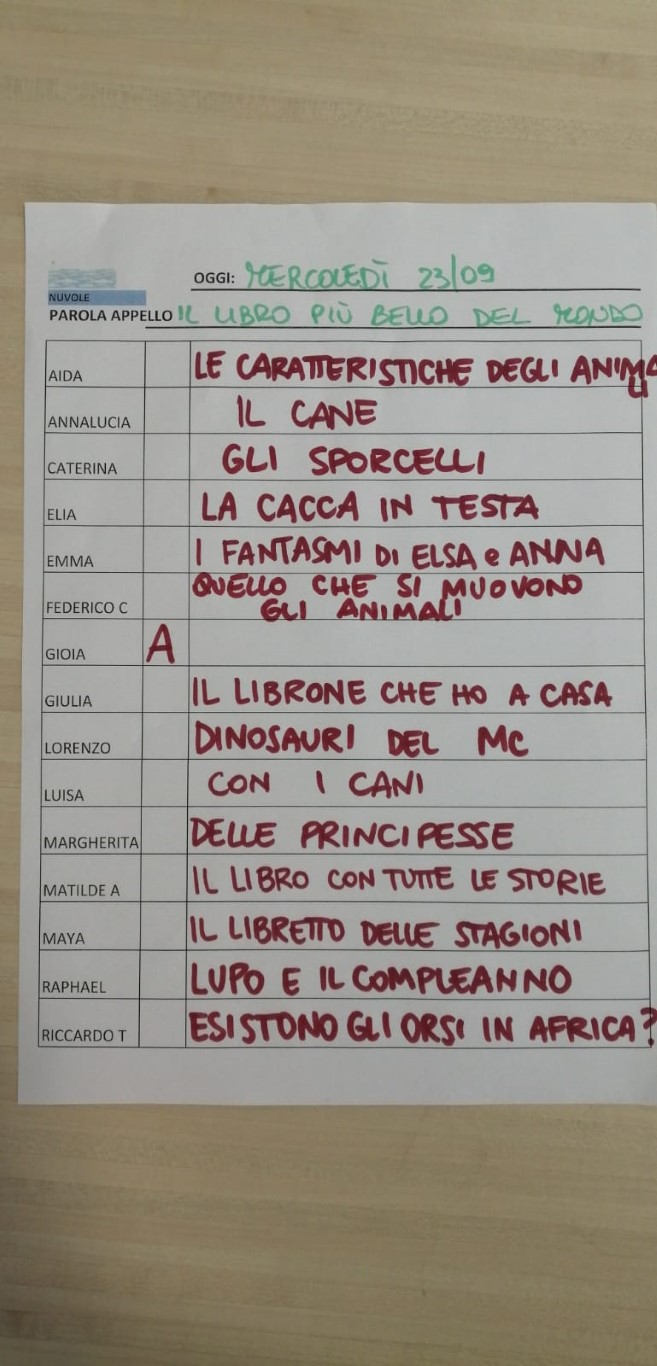 OGGI: MERCOLEDÌ 23/09
NUVOLE
PAROLA APPELLO IL LIBRO PIÙ BELLO DEL MONDO
AIDA LE CARATTERISTICHE DEGLI ANIMALI
ANNALUCIA IL CANE
CATERINA GLI SPORCELLI
ELIA LA CACCA IN TESTA
EMMA I FANTASMI DI ELSA e ANNA
FEDERICO C QUELLO CHE SI MUOVONO
GLI ANIMALI
GIOIA A
GIULIA IL LIBRONE CHE HO A CASA
LORENZO DINOSAURI DEL MC
LUISA CON I CANI
MARGHERITA DELLE PRINCIPESSE
MATILDE A IL LIBRO CON TUTTE LE STORIE
MAYA IL LIBRETTO DELLE STAGIONI
RAPHAEL LUPO E IL COMPLEANNO
RICCARDO T ESISTONO GLI ORSI IN AFRICA?